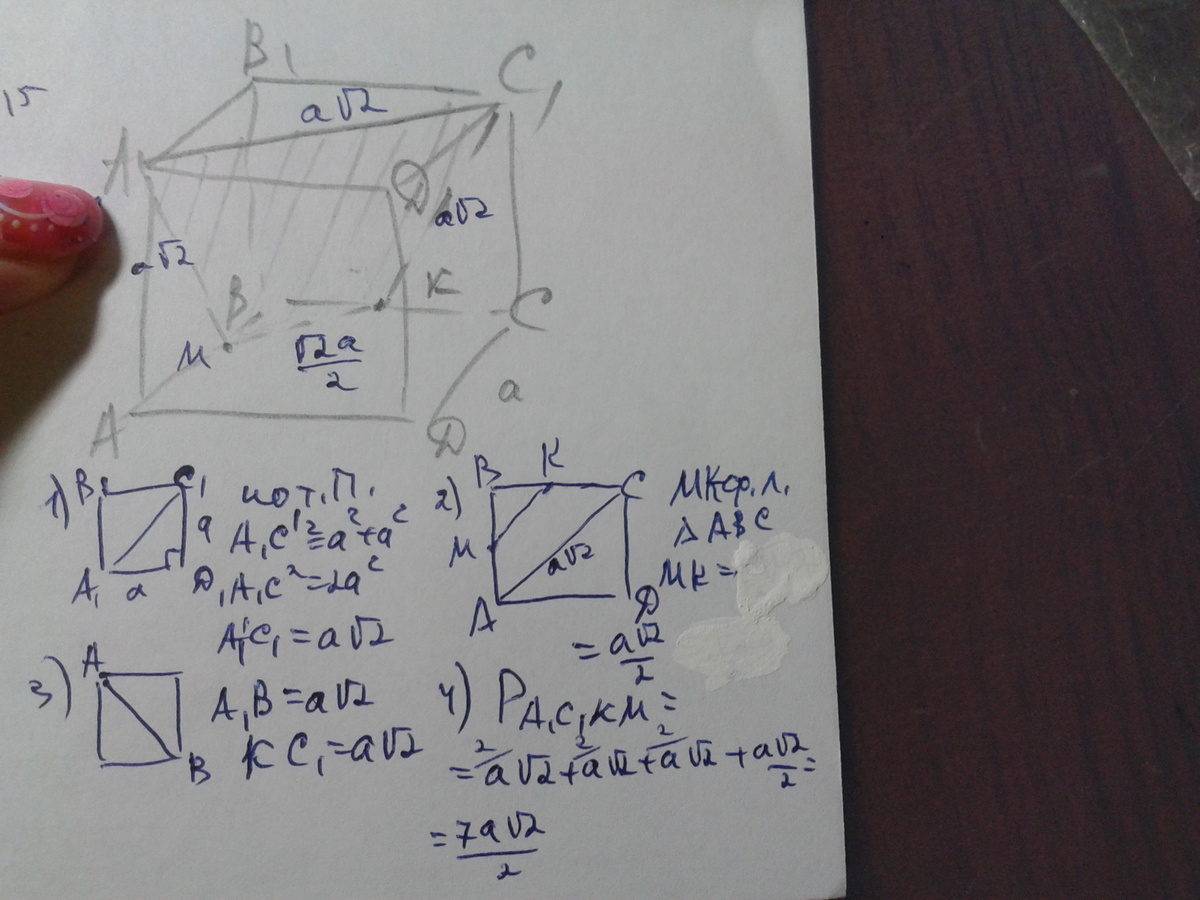 15
B1
C1
a√2
A
D
a√2
a√2
B
K
C
M
√2a/2
a
A
D
1) B1 C1
a
A1 a D1
по т. П.
A1C1²=a²+a²
A1C²=2a²
A1C1=a√2
2) B K C
M a√2
A D
MK ср. л.
△ABC
MK=
=a√2/2
3) A
B
A1B=a√2
KC1=a√2
4) PA1C1KM=
=²/a√2+²/a√2+²/a√2+a√2/2=
=7a√2/2